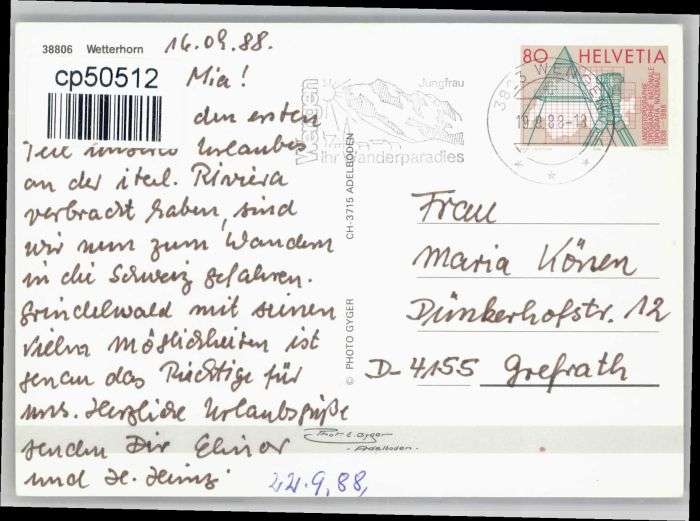 38806 Wetterhorn
16.09.88.
cp50512
Mia!
den ersten
Teil unseres Urlaubes
an der ital. Riviera
verbracht haben, sind
wir nun zum Wandern
in die Schweiz gefahren.
Grindelwald mit seinen
vielen Möglichkeiten ist
genau das Richtige für
uns. Herzliche Urlaubsgrüße
senden Dir Elinor
und H. Heinz
22.9.88,
© PHOTO GYGER CH-3715 ADELBODEN
Photo Gyger
Adelboden
Wengen
Jungfrau
Ihr Wanderparadies
WENGEN
19.9.88-18
80 HELVETIA
Frau
Maria Könen
Dünkerhofstr. 12
D-4155 Grefrath